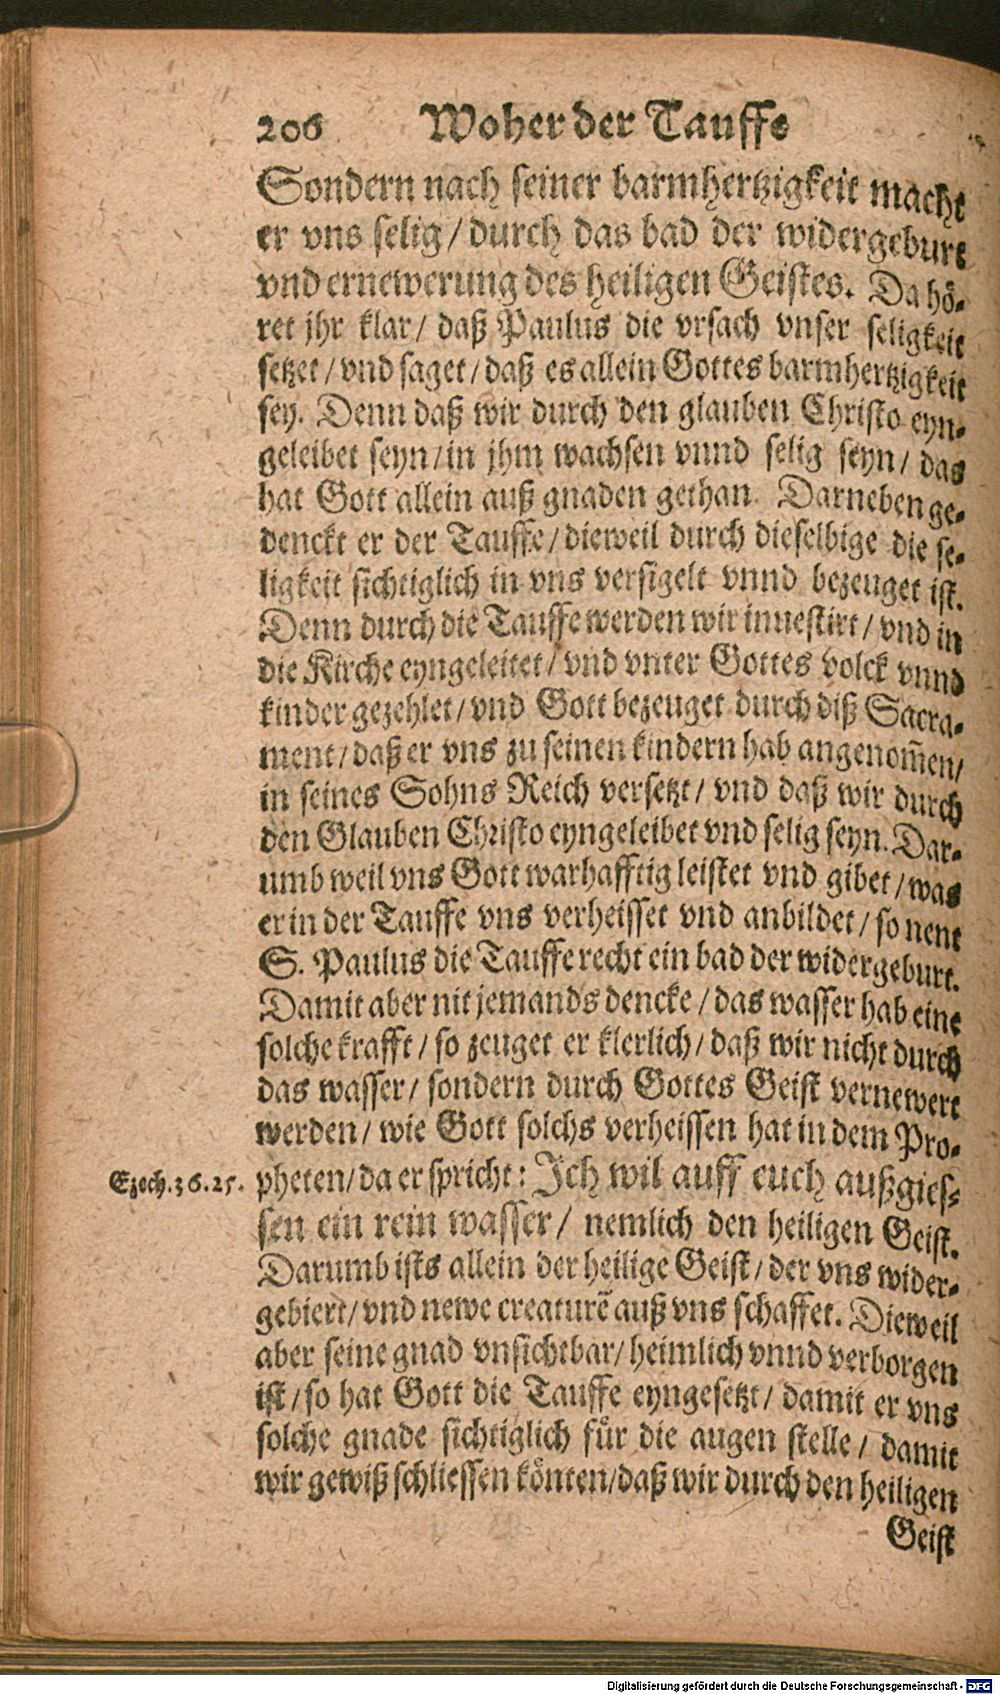 206 Woher der Tauffe
Sondern nach seiner barmhertzigkeit macht
er vns selig / durch das bad der widergeburt
vnd ernewerung des heiligen Geistes. Da hö-
ret jhr klar / daß Paulus die vrsach vnser seligkeit
setzet / vnd saget / daß es allein Gottes barmhertzigkeit
sey. Denn daß wir durch den glauben Christo eyn-
geleibet seyn / in jhm wachsen vnnd selig seyn / das
hat Gott allein auß gnaden gethan. Darneben ge-
denckt er der Tauffe / dieweil durch dieselbige die se-
ligkeit sichtiglich in vns versigelt vnnd bezeuget ist.
Denn durch die Tauffe werden wir inuestirt / vnd in
die Kirche eyngeleitet / vnd vnter Gottes volck vnnd
kinder gezehlet / vnd Gott bezeuget durch diß Sacra-
ment / daß er vns zu seinen kindern hab angenom̃en /
in seines Sohns Reich versetzt / vnd daß wir durch
den Glauben Christo eyngeleibet vnd selig seyn. Dar-
umb weil vns Gott warhafftig leistet vnd gibet / was
er in der Tauffe vns verheisset vnd anbildet / so nent
S. Paulus die Tauffe recht ein bad der widergeburt.
Damit aber nit jemands dencke / das wasser hab eine
solche krafft / so zeuget er klerlich / daß wir nicht durch
das wasser / sondern durch Gottes Geist vernewert
werden / wie Gott solchs verheissen hat in dem Pro-
Ezech. 36. 25. pheten / da er spricht: Ich wil auff euch außgies-
sen ein rein wasser / nemlich den heiligen Geist.
Darumb ists allein der heilige Geist / der vns wider-
gebiert / vnd newe creaturē auß vns schaffet. Dieweil
aber seine gnad vnsichtbar / heimlich vnnd verborgen
ist / so hat Gott die Tauffe eyngesetzt / damit er vns
solche gnade sichtiglich für die augen stelle / damit
wir gewiß schliessen könten / daß wir durch den heiligen
Geist
Digitalisierung gefördert durch die Deutsche Forschungsgemeinschaft - DFG